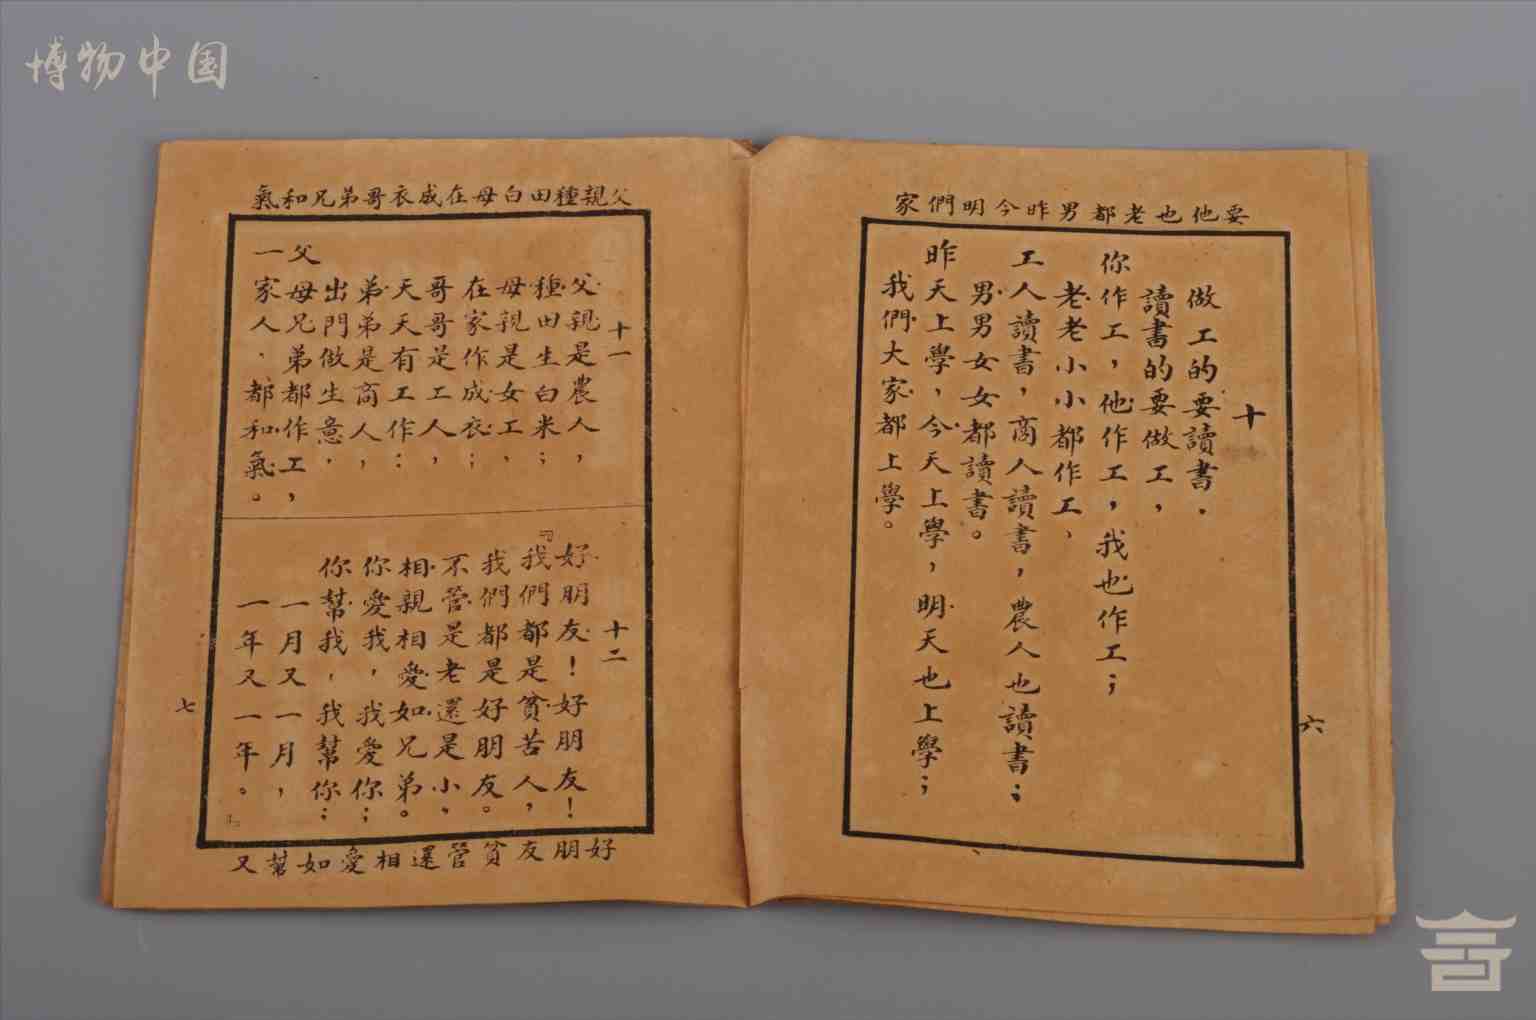 博物中国
要他也老都男昨今明們家
十
做工的要讀書.
讀書的要做工,
你作工,他作工,我也作工;
老老小小都作工、
工人讀書,商人讀書,農人也讀書;
男男女女都讀書。
昨天上學,今天上學,明天也上學;
我們大家都上學。
六
父親種田白母在成衣哥弟兄和氣
十一
父親是農人,
種田生白米;
母親是女工、
在家作成衣;
哥哥是工人,
天天有工作:
弟弟是商人,
出門做生意,
父母兄弟都作工,
一家人、都和氣。
十二
好朋友!好朋友!
『我們都是貧苦人,
我們都是好朋友。
不管是老還是小,
相親相愛如兄弟。
你愛我,我愛你;
你幫我,我幫你;
一月又一月,
一年又一年。』
七
好朋友貧管還相愛如幫又